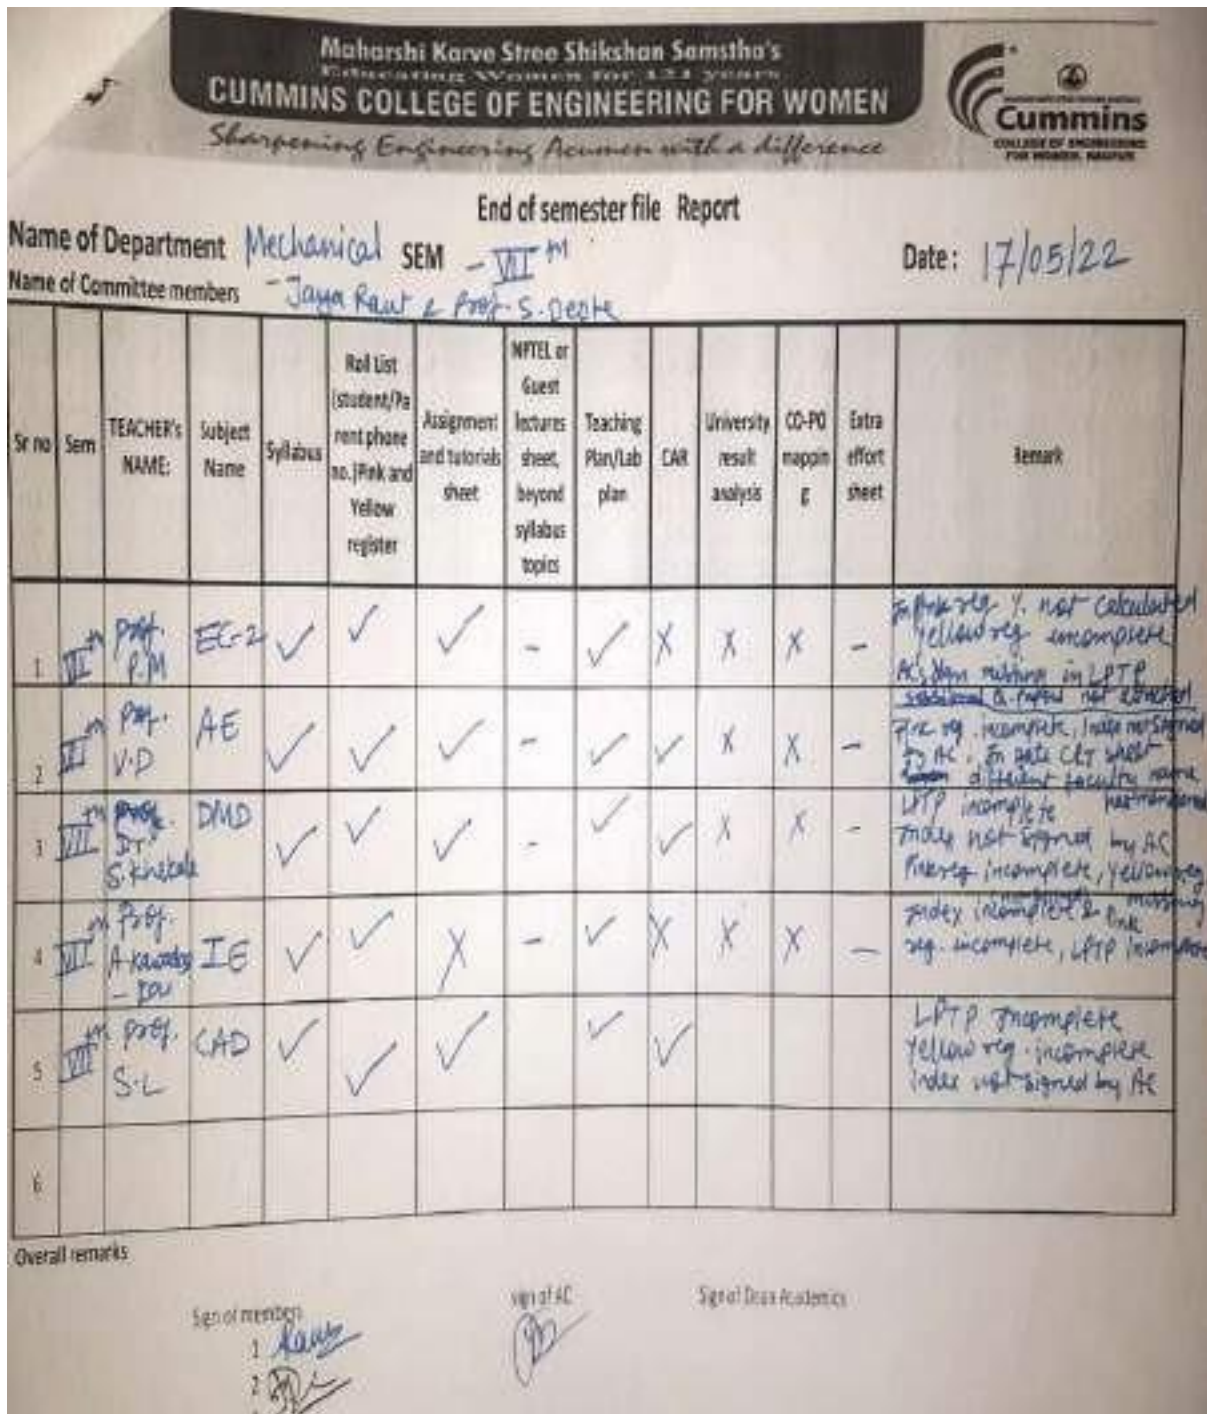 Maharshi Karve Stree Shikshan Samstha's
Educating Women for 121 years
CUMMINS COLLEGE OF ENGINEERING FOR WOMEN
Sharpening Engineering Acumen with a difference
Cummins
COLLEGE OF ENGINEERING
FOR WOMEN, NAGPUR
End of semester file Report
Name of Department Mechanical SEM - VII th Date: 17/05/22
Name of Committee members - Jaya Raut & Prof. S.
Sr no Sem TEACHER's NAME: Subject Name Syllabus Roll List (student/Parent phone no.)Pink and Yellow register Assignment and tutorials sheet NPTEL or Guest lectures sheet, beyond syllabus topics Teaching Plan/Lab plan CAR University result analysis CO-PO mapping Extra effort sheet Remark
1 VII th Prof. P.M EC-2 ✓ ✓ ✓ - ✓ X X X - In Pink reg % not calculated
Yellow reg incomplete
AC's sign missing in LPTP
Q. paper not attached
2 Prof. V.D AE ✓ ✓ ✓ - ✓ ✓ X X - Pink reg. incomplete, Index not signed
by AC, In sheet
different faculty name
3 VII th Dr. S. DMD ✓ ✓ ✓ - ✓ ✓ X X - LPTP incomplete
Index not signed by AC
Pink reg. incomplete, Yellow reg
missing
4 VII th Prof. A. IE ✓ ✓ X - ✓ X X X - Index incomplete & Pink
reg. incomplete, LPTP incomplete
5 VII th Prof. S.L CAD ✓ ✓ ✓ ✓ ✓ LPTP Incomplete
Yellow reg. incomplete
index not signed by AC
6
Overall remarks
Sign of members sign of AC Sign of Dean Academics
1
2